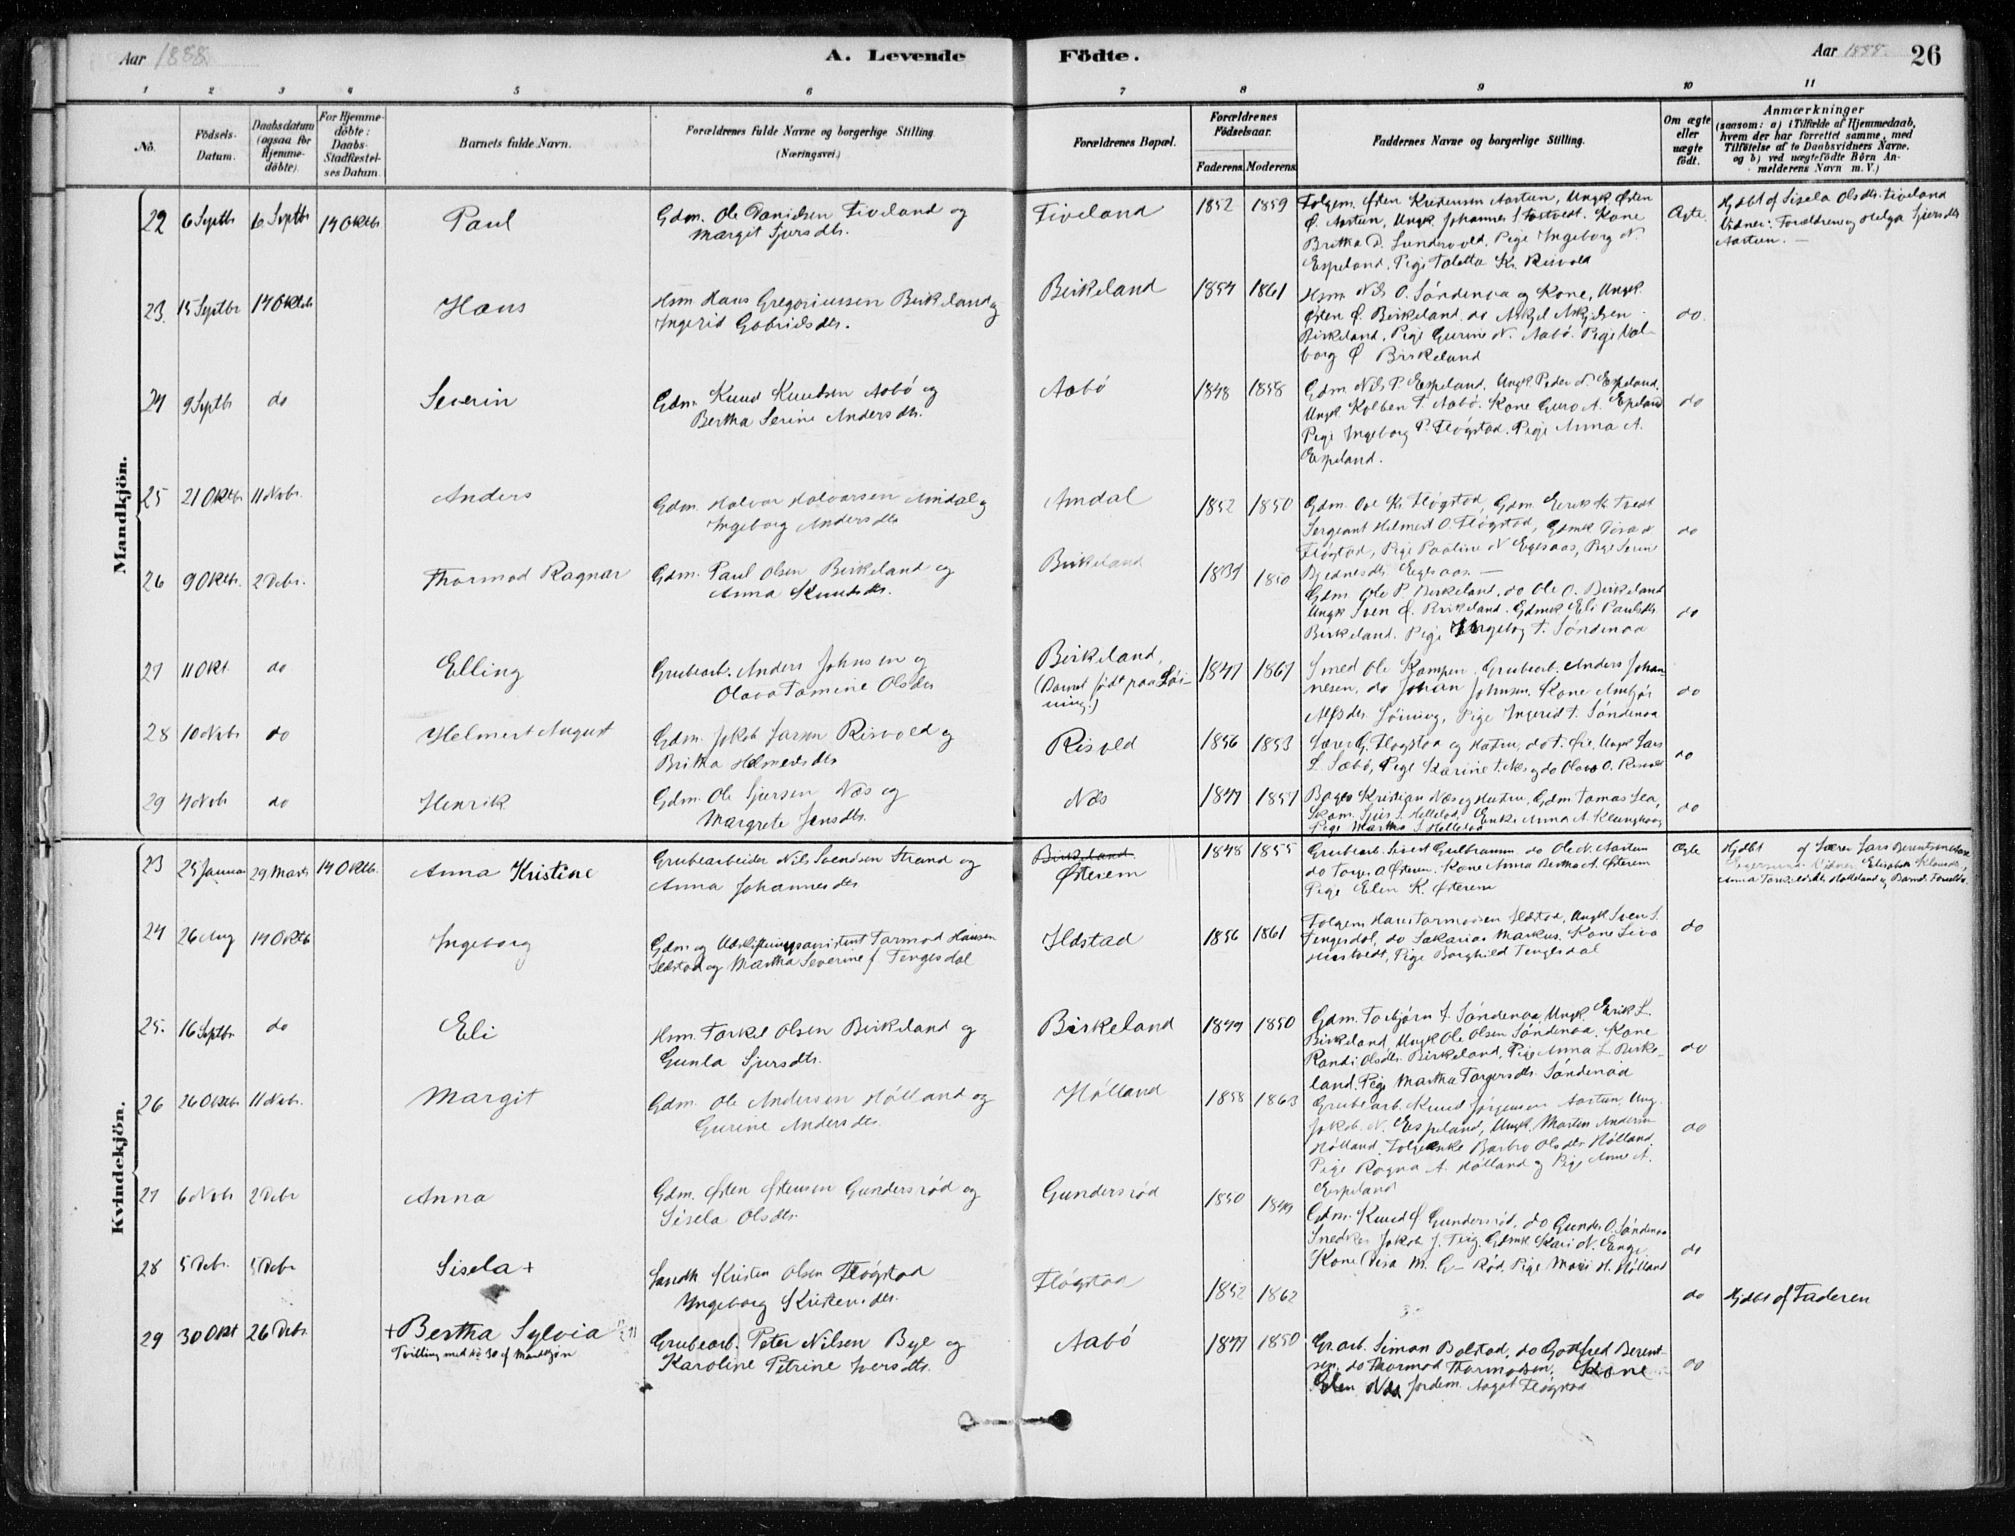 Aar 1888. A. Levende Födte. Aar 1888. 26
1 2 3 4 5 6 7 8 9 10 11
No.
Födsels-Datum.
Daabsdatum (ogsaa for Hjemme-döbte).
For Hjemme-döbte: Daabs-Stadfæstel-ses Datum.
Barnets fulde Navn.
Forældrenes fulde Navne og borgerlige Stilling. (Næringsvei.)
Forældrenes Bopæl.
Forældrenes Födselsaar. Faderens. Moderens.
Faddernes Navne og borgerlige Stilling.
Om ægte eller uægte födt.
Anmærkninger
(saasom: a) i Tilfælde af Hjemmedaab,
hvem der har forrettet samme, med
Tilföielse af to Daabsvidners Navne,
og b) ved uægtefödte Börn An-
melderens Navn m. V.)
Mandkjön.
22 6 Septbr 6 Septbr 14 Oktbr Paul
Gdm. Ole Danielsen Tiveland og
Margit Sjursdtr.
Tiveland 1852 1859
Østen Aartun, Ungk Østen
Ø. Aartun, Ungk. Johannes Kone
Britha D. Pige Ingeborg N.
Espeland. Pige Kr. Risvold
Ægte.
Hjdbt af Sisela Olsdtr. Tiveland
Vidner: Forældrene og Helga Sjursdtr
Aartun. —
23. 15 Septbr 14 Oktbr Hans
Hsm Hans Gregoriussen Birkeland og
Ingerid Gabrielsdtr.
Birkeland 1854 1861
Hsm. Nils O. Söndenaa og Kone, Ungk.
Østen Ø. Birkeland. do
Birkeland, Pige Gurine N. Aabö. Pige Val-
borg Ø Birkeland
do.
24 9 Septbr do Severin
Gdm. Knud Knudsen Aabö og
Bertha Serine Andersdtr.
Aabö 1848 1858
Gdm. Nils P. Espeland, Ungk Peder N. Espeland.
Ungk Kolben T. Aabö. Kone Guro A. Espeland
Pige Ingeborg P. Flögstad. Pige Anna A.
Espeland.
do
25 21 Oktbr 11 Novbr. Anders
Gdm. Halvor Halvorsen Amdal og
Ingeborg Andersdtr
Amdal 1852 1850
Gdm. Ove Kr. Flögstad, Gdm. Eerik K. Tvedt
Sergeant Helmert O. Flögstad, Gdmk
Flögstad, Pige Paaline N Egesaas, Pige
Egesaas. —
do
26 9 Oktbr. 2 Debr. Thormod Ragnar
Gdm. Paul Olsen Birkeland og
Anna Knudsdtr.
Birkeland 1850
Gdm Ole P. Birkeland, do Ole O. Birkeland
Ungk Sven Ø. Birkeland. Gdmk Eli Paulsdtr
Birkeland. Pige Ingeborg T. Söndenaa
do
27 11 Okt do Elling
Grubearb. Anders Johnsen og
Olava Tomine Olsdtr
Birkeland,
(Barnet födt paa Löi-
ning.)
1847 1867
Smed Ole Kampen. Grubearb. Anders Johan-
nesen, do Johan Johnsen. Kone
Alfsdtr Löining, Pige Ingerid T. Söndenaa
do
28 10 Novbr do Helmert August
Gdm. Jakob Larsen Risvold og
Britha Helmersdtr
Risvold 1856 1853
Lærer G. Flogstad og Hustru, do T. Øie, Ungk Lars
L. Sæbö, Pige Karine T. Næs og do Olava O. Risvold
do
29 4 Novb do Henrik
Gdm. Ole Sjursen Næs og
Margrete Jensdtr.
Næs 1847 1857
Bager Kristian Næs og Hustru, Gdm Tomas Lea,
Skom. Sjur S. Hellestad, Enke Anna A. Klunghaug
Pige Martha S. Hellestad
do
Kvindekjön.
23 25 Januar 29 Marts 14 Oktbr. Anna Kristine
Grubearbeider Nils Svendsen Strand og
Anna Johannesdtr
Birkeland
Østerem
1848 1855
Grubearb. Sivert Gulbramm. do Ole N. Aartun
do Torger O. Østerem. Kone Anna Bertha A. Østerem
Pige Elen K. Østerem
Ægte
Hjdbt af Lærer Lars Berentsen
Vidner Elisabeth
Anna Hölleland og Barnets Forældre.
24 26 Aug 14 Oktb Ingeborg
Gdm. og Udskiftningsassistent Tormod Hansen
Ildstad og Martha Severine J. Tengesdal
Ildstad 1856 1861
Hans Tormodsen Ildstad, Ungk Sven S.
Tengesdal, do Sakarias Markus. Kone
Pige Borghild Tengesdal
do
25. 16 Septbr do Eli
Hsm. Torkel Olsen Birkeland og
Gunla Sjursdtr.
Birkeland 1849 1850
Gdm. Torbjörn T. Söndenaa, Ungk. Erik L.
Birkeland, Ungk Ole Olsen Söndenaa. Kone
Randi Olsdtr Birkeland, Pige Anna L. Birke-
land. Pige Martha Torgersdtr. Söndenaa
do
26 26 Oktbr 11 Novbr. Margit
Gdm. Ole Andersen Hölland og
Gurine Andersdtr.
Hölland 1858 1863
Grubearb. Knud Jörgensen Aartun, Ung.
Jakob N. Espeland, Ungk. Martin Andersen
Hölland. Folgeenke Barbro Olsdtr Hölland.
Pige Ragna A. Hölland og Pige Anne A.
Espeland
do
27 6 Novb 2 Debr Anna
Gdm. Østen Østensen Gundersröd og
Sisela Olsdtr
Gundersröd 1850 1849
Gdm. Knud Ø Gundersröd, do Gunder O. Söndenaa
Snedker Jakob J. Teig. Gdmk Kari N. Enge.
Kone M. G— Röd. Pige Mari H. Hölland
do
28 5 Debr. 5 Debr Sisela +
Landh Kristen Olsen Flögstad
Ingeborg Kristensdtr.
Flögstad 1852 1862
do
Hjdbt af Faderen
29 30 Okt 26 Debr. + Bertha Sylvia
Tvilling med No 30 af Mandkjøn
Grubearb. Peter Nilsen Bye og
Karoline Petrine Iversdtr.
Aabö 1847 1850
Gr.arb. Simon Bolstad, do Gottfred Berent-
sen, do Thormod Thormodsen, Kone
Elen Næs Jordem. Aagot Flögstad
do